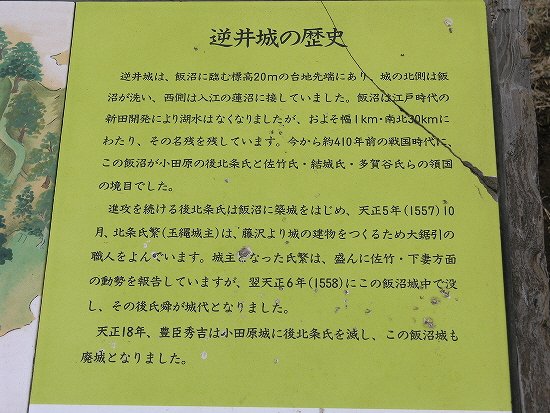 逆井城の歴史
逆井城は、飯沼に臨む標高20mの台地先端にあり、城の北側は飯
沼が洗い、西側は入江の蓮沼に接していました。飯沼は江戸時代の
新田開発により湖水はなくなりましたが、およそ幅1km・南北30kmに
わたり、その名残を残しています。今から約410年前の戦国時代に、
この飯沼が小田原の後北条氏と佐竹氏・結城氏・多賀谷氏らの領国
の境目でした。
進攻を続ける後北条氏は飯沼に築城をはじめ、天正5年(1557)10
月、北条氏繁(玉縄城主)は、藤沢より城の建物をつくるため大鋸引の
職人をよんでいます。城主となった氏繁は、盛んに佐竹・下妻方面
の動勢を報告していますが、翌天正6年(1558)にこの飯沼城中で没
し、その後氏舜が城代となりました。
天正18年、豊臣秀吉は小田原城に後北条氏を滅し、この飯沼城も
廃城となりました。